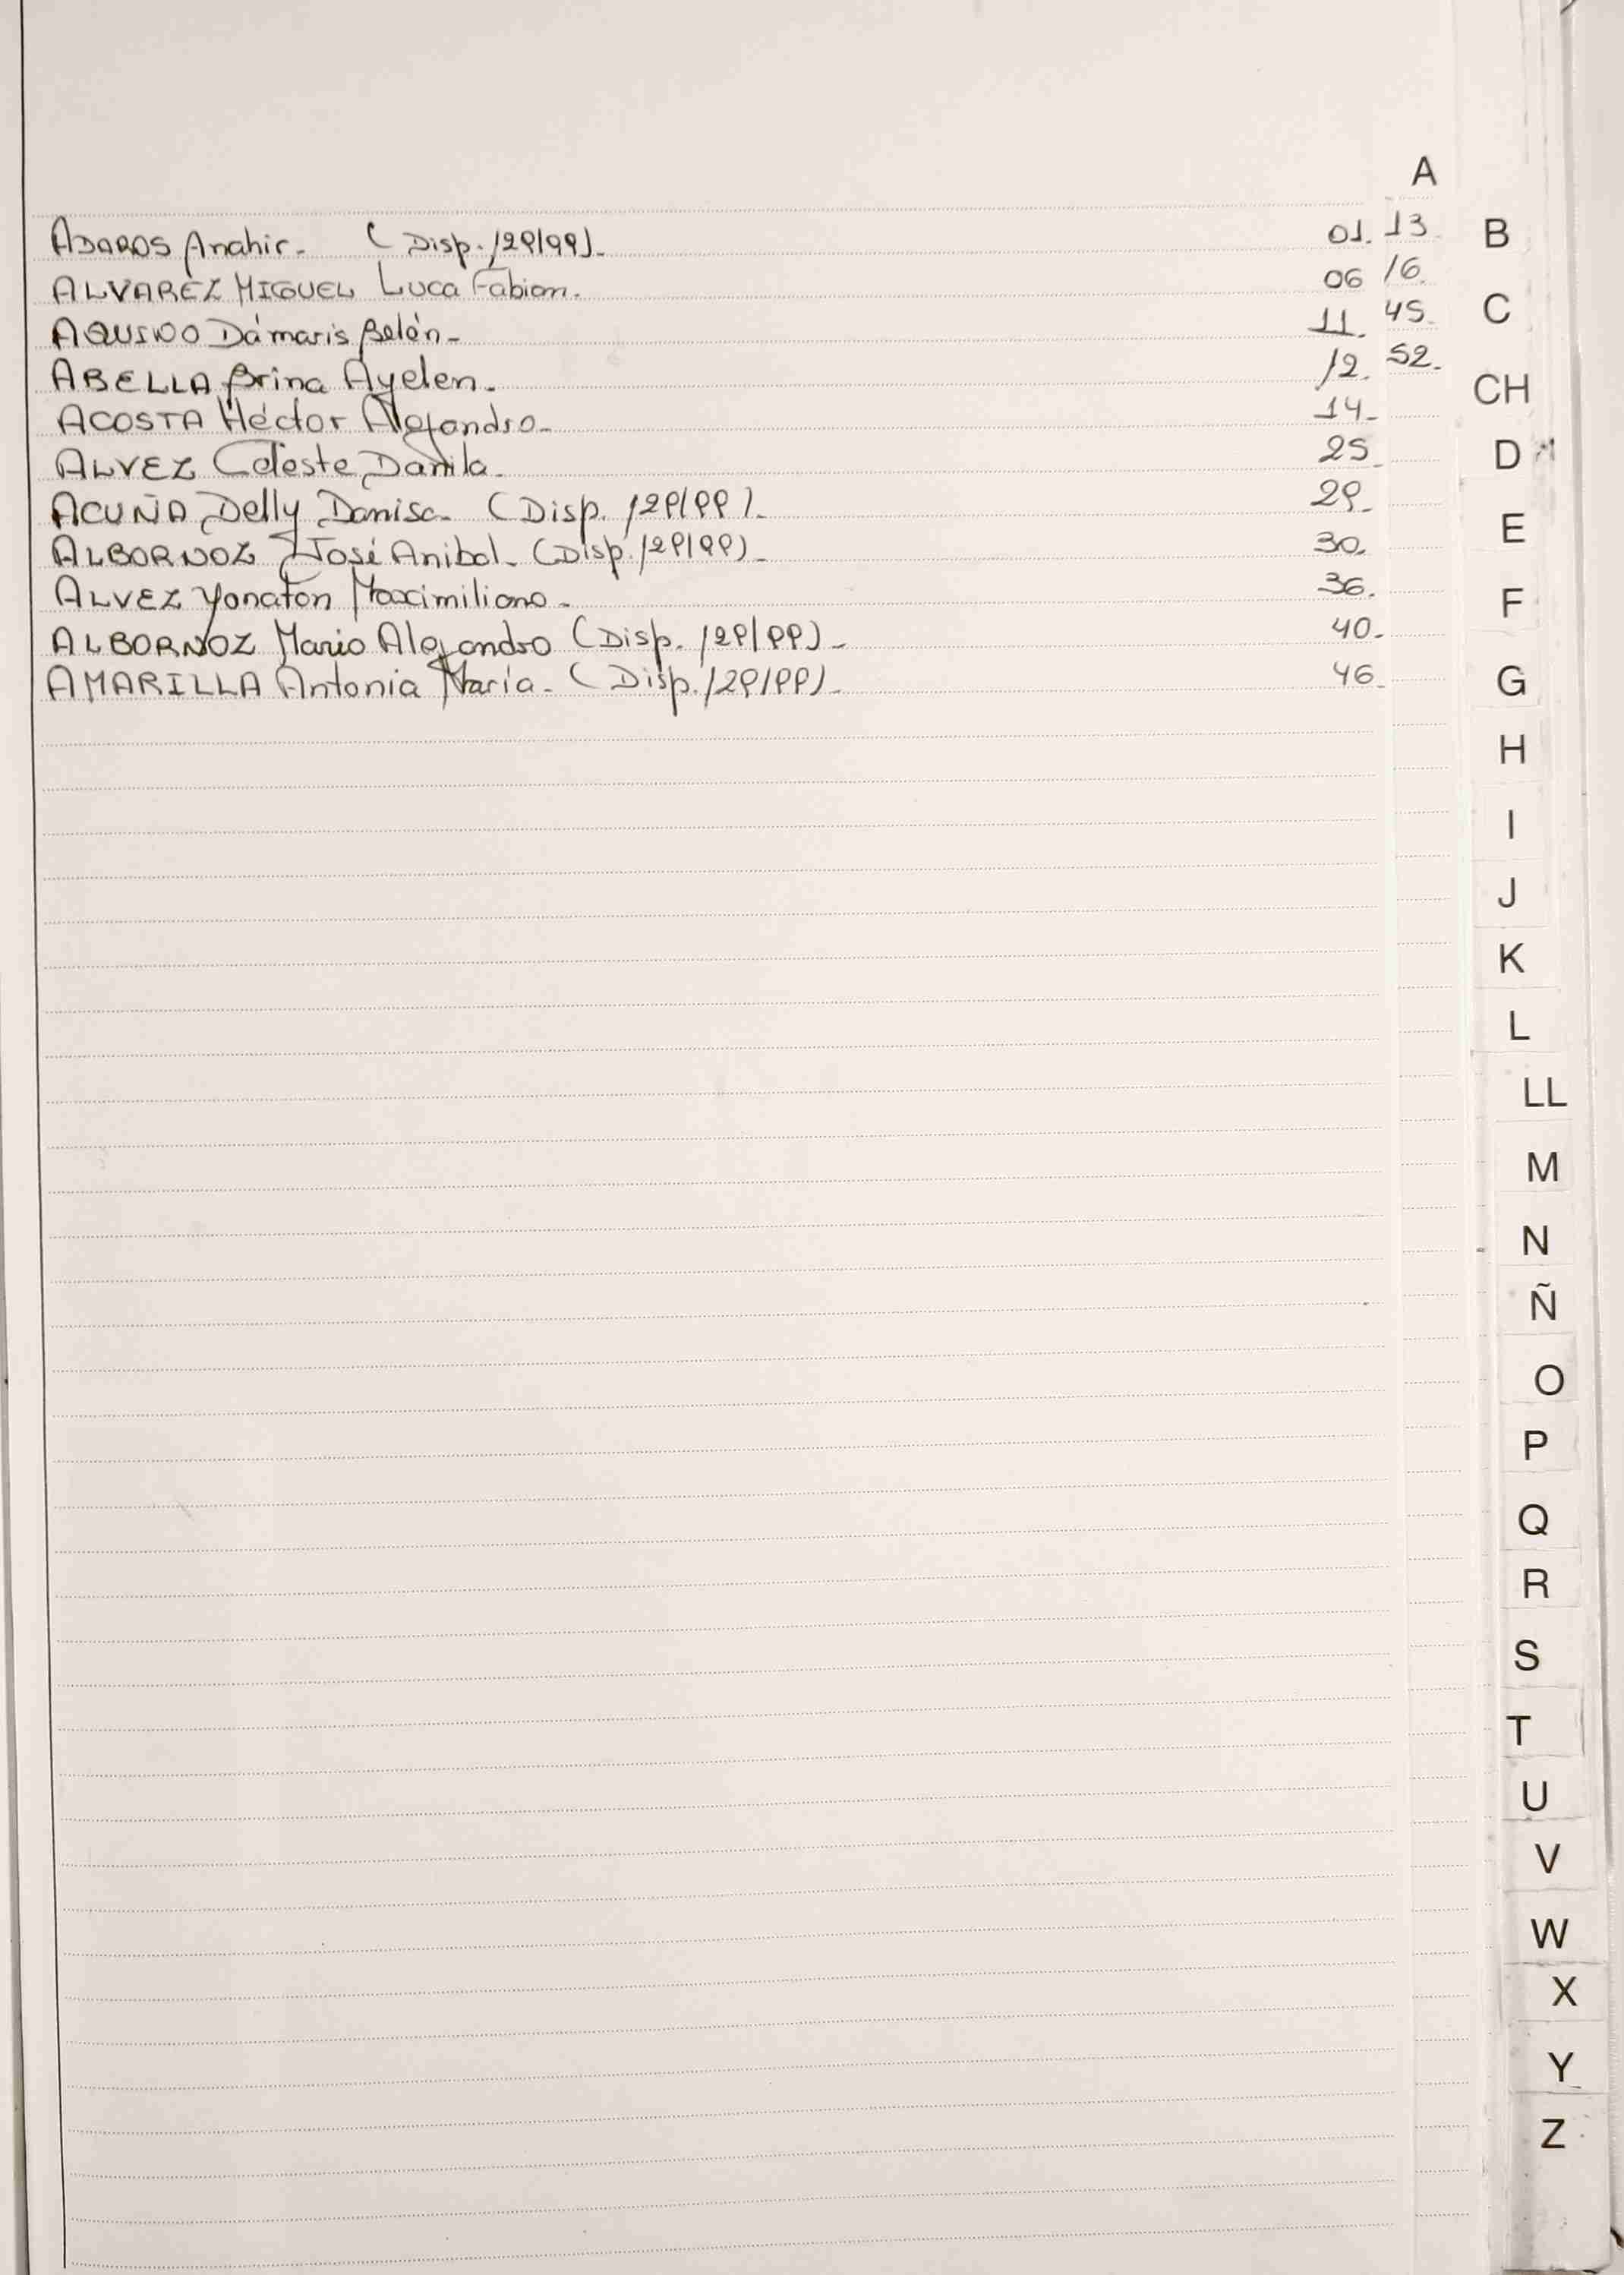 A
ADAROS Anahir. (Disp. 129/99).. 01. 13
ALVAREZ MIGUEL Luca Fabian. 06 16.
AQUINO Dámaris Belén. 11. 45.
ABELLA Brina Ayelen. 12. 52.
ACOSTA Héctor Alejandro. 14.
ALVEZ Celeste Danila. 25.
ACUÑA Delly Danisa. (Disp. 129/99). 29.
ALBORNOZ José Anibal. (Disp. 129/99). 30.
ALVEZ Yonatan Maximiliano. 36.
ALBORNOZ Mario Alejandro (Disp. 129/99). 40.
AMARILLA Antonia María. (Disp. 129/99). 46.
B
C
CH
D
E
F
G
H
I
J
K
L
LL
M
N
Ñ
O
P
Q
R
S
T
U
V
W
X
Y
Z